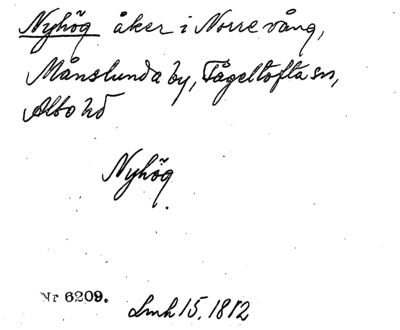 Nyhög åker i Norrevång,
Månslunda by, Fågeltofta sn,
Albo hd
Nyhög
Nr 6209. Lmh 15, 1812